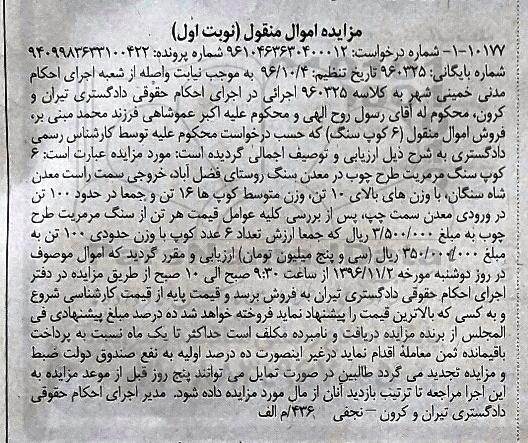 مزایده اموال منقول (نوبت اول)
۱۰۱۷۷-۱- شماره درخواست: ۹۶۱۰۴۶۳۶۳۰۴۰۰۰۱۲ شماره پرونده: ۹۴۰۹۹۸۳۶۳۳۱۰۰۴۲۲
شماره بایگانی: ۹۶۰۳۲۵ تاریخ تنظیم: ۹۶/۱۰/۴ به موجب نیابت واصله از شعبه اجرای احکام
مدنی خمینی شهر به کلاسه ۹۶۰۳۲۵ اجرائی در اجرای احکام حقوقی دادگستری تیران و
کرون، محکوم له آقای رسول روح الهی و محکوم علیه اکبر عموشاهی فرزند محمد مبنی بر،
فروش اموال منقول (۶ کوپ سنگ) که حسب درخواست محکوم علیه توسط کارشناس رسمی
دادگستری به شرح ذیل ارزیابی و توصیف اجمالی گردیده است: مورد مزایده عبارت است: ۶
کوپ سنگ مرمریت طرح چوب در معدن سنگ روستای فضل آباد، خروجی سمت راست معدن
شاه سنگان، با وزن های بالای ۱۰ تن، وزن متوسط کوپ ها ۱۶ تن و جمعا در حدود ۱۰۰ تن
در ورودی معدن سمت چپ، پس از بررسی کلیه عوامل قیمت هر تن از سنگ مرمریت طرح
چوب به مبلغ ۳/۵۰۰/۰۰۰ ریال که جمعا ارزش تعداد ۶ عدد کوپ با وزن حدودی ۱۰۰ تن به
مبلغ ۳۵۰/۰۰۰/۰۰۰ ریال (سی و پنج میلیون تومان) ارزیابی و مقرر گردید که اموال موصوف
در روز دوشنبه مورخه ۱۳۹۶/۱۱/۲ از ساعت ۹:۳۰ صبح الی ۱۰ صبح از طریق مزایده در دفتر
اجرای احکام حقوقی دادگستری تیران به فروش برسد و قیمت پایه از قیمت کارشناسی شروع
و به کسی که بالاترین قیمت را پیشنهاد نماید فروخته خواهد شد ده درصد مبلغ پیشنهادی فی
المجلس از برنده مزایده دریافت و نامبرده مکلف است حداکثر تا یک ماه نسبت به پرداخت
باقیمانده ثمن معامله اقدام نماید درغیر اینصورت ده درصد اولیه به نفع صندوق دولت ضبط
و مزایده تجدید می گردد طالبین در صورت تمایل می توانند پنج روز قبل از موعد مزایده به
این اجرا مراجعه تا ترتیب بازدید آنان از مال مورد مزایده داده شود. مدیر اجرای احکام حقوقی
دادگستری تیران و کرون – نجفی ۴۳۶/م الف